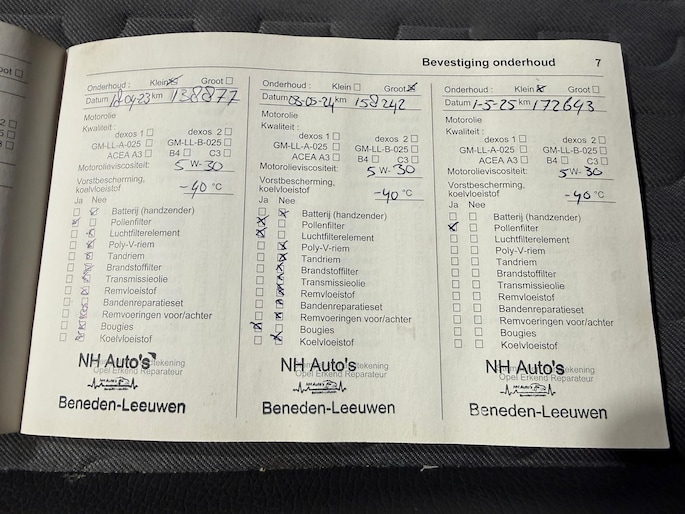 Bevestiging onderhoud 7
Onderhoud : Klein ☒ Groot ☐
Datum 18-04-23 km 138877
Motorolie
Kwaliteit :
dexos 1 ☐ dexos 2 ☐
GM-LL-A-025 ☐ GM-LL-B-025 ☐
ACEA A3 ☐ B4 ☐ C3 ☐
Motorolieviscositeit: 5 W- 30
Vorstbescherming,
koelvloeistof -40 °C
Ja Nee
Batterij (handzender)
Pollenfilter
Luchtfilterelement
Poly-V-riem
Tandriem
Brandstoffilter
Transmissieolie
Remvloeistof
Bandenreparatieset
Remvoeringen voor/achter
Bougies
Koelvloeistof
NH Auto's
Opel Erkend Reparateur
Beneden-Leeuwen
Onderhoud : Klein ☐ Groot ☒
Datum 03-05-24 km 158242
Motorolie
Kwaliteit :
dexos 1 ☐ dexos 2 ☐
GM-LL-A-025 ☐ GM-LL-B-025 ☐
ACEA A3 ☐ B4 ☐ C3 ☐
Motorolieviscositeit: 5 W- 30
Vorstbescherming,
koelvloeistof -40 °C
Ja Nee
Batterij (handzender)
Pollenfilter
Luchtfilterelement
Poly-V-riem
Tandriem
Brandstoffilter
Transmissieolie
Remvloeistof
Bandenreparatieset
Remvoeringen voor/achter
Bougies
Koelvloeistof
NH Auto's
Opel Erkend Reparateur
Beneden-Leeuwen
Onderhoud : Klein ☒ Groot ☐
Datum 1-5-25 km 172643
Motorolie
Kwaliteit :
dexos 1 ☐ dexos 2 ☐
GM-LL-A-025 ☐ GM-LL-B-025 ☐
ACEA A3 ☐ B4 ☐ C3 ☐
Motorolieviscositeit: 5 W- 30
Vorstbescherming,
koelvloeistof -40 °C
Ja Nee
Batterij (handzender)
Pollenfilter
Luchtfilterelement
Poly-V-riem
Tandriem
Brandstoffilter
Transmissieolie
Remvloeistof
Bandenreparatieset
Remvoeringen voor/achter
Bougies
Koelvloeistof
NH Auto's
Opel Erkend Reparateur
Beneden-Leeuwen